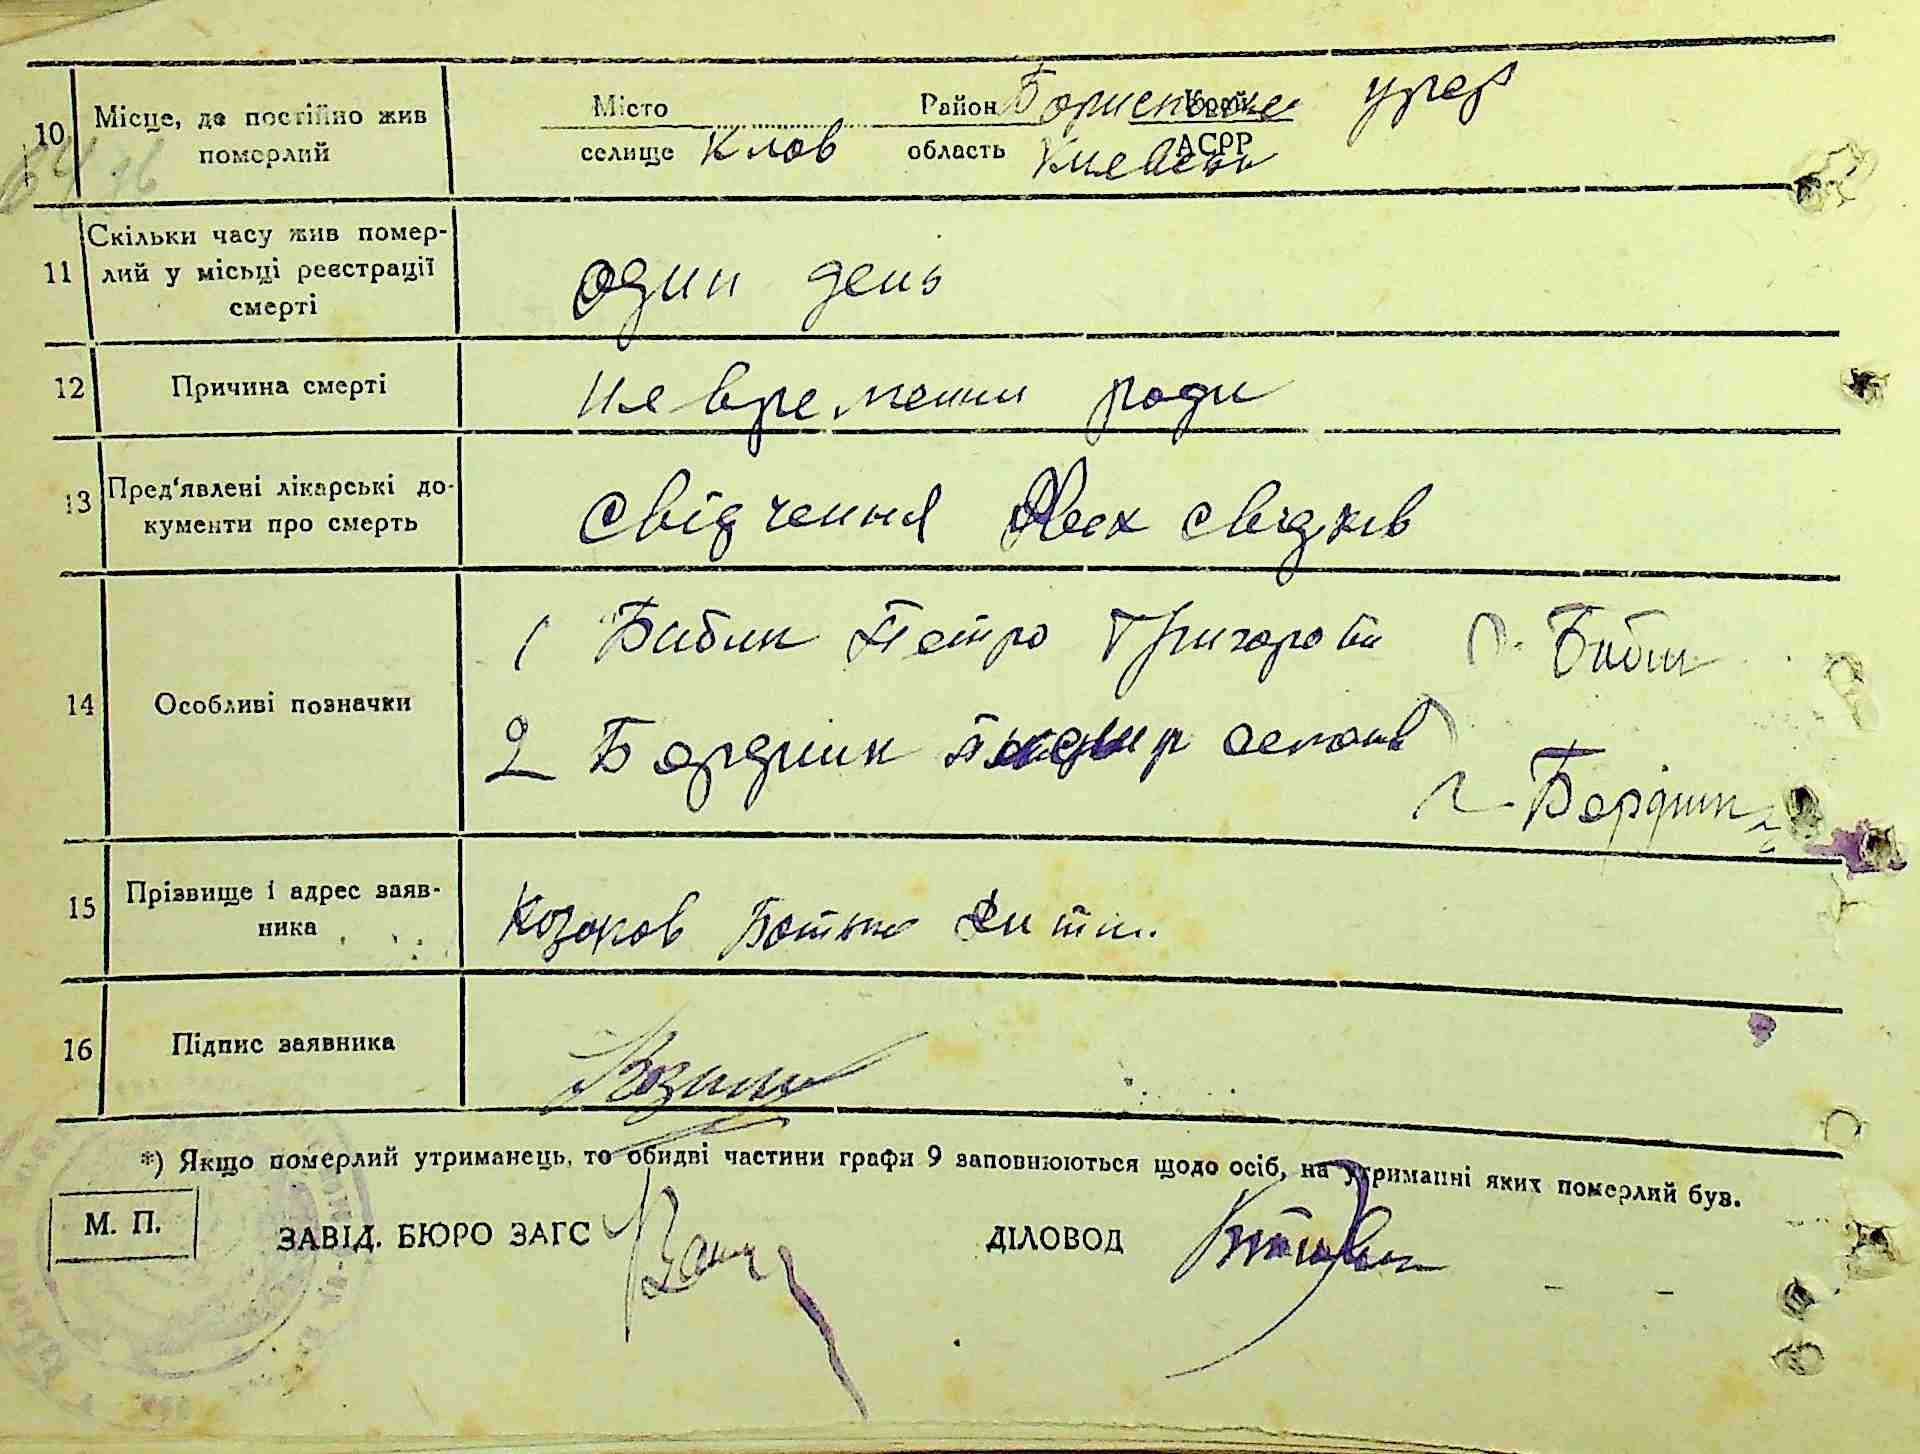 10 Місце, де постійно жив померлий
Місто Район Бориспольськ Край УРСР
селище Клов область Киевськ АСРР
11 Скільки часу жив помер-
лий у місьці реєстрації
смерті
один день
12 Причина смерті
Невременни роди
13 Пред'явлені лікарські до-
кументи про смерть
свідчення Двох свідків
14 Особливі позначки
1 Бибик Петро Григоров Бибик
2 Бардник
15 Прізвище і адрес заяв-
ника
Козаков Батько Дитин.
16 Підпис заявника
*) Якщо померлий утриманець, то обидві частини графи 9 заповнюються щодо осіб, на утриманні яких померлий був.
М. П. ЗАВІД. БЮРО ЗАГС ДІЛОВОД